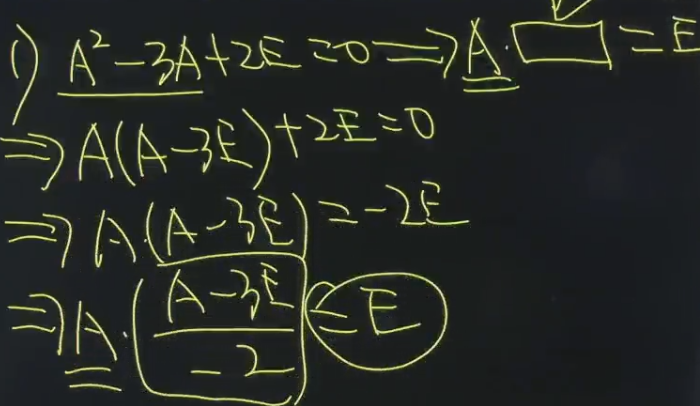 1) A² - 3A + 2E = 0 ⟹ A · □ = E
⟹ A(A - 3E) + 2E = 0
⟹ A · (A - 3E) = -2E
⟹ A · (A - 3E / -2) = E